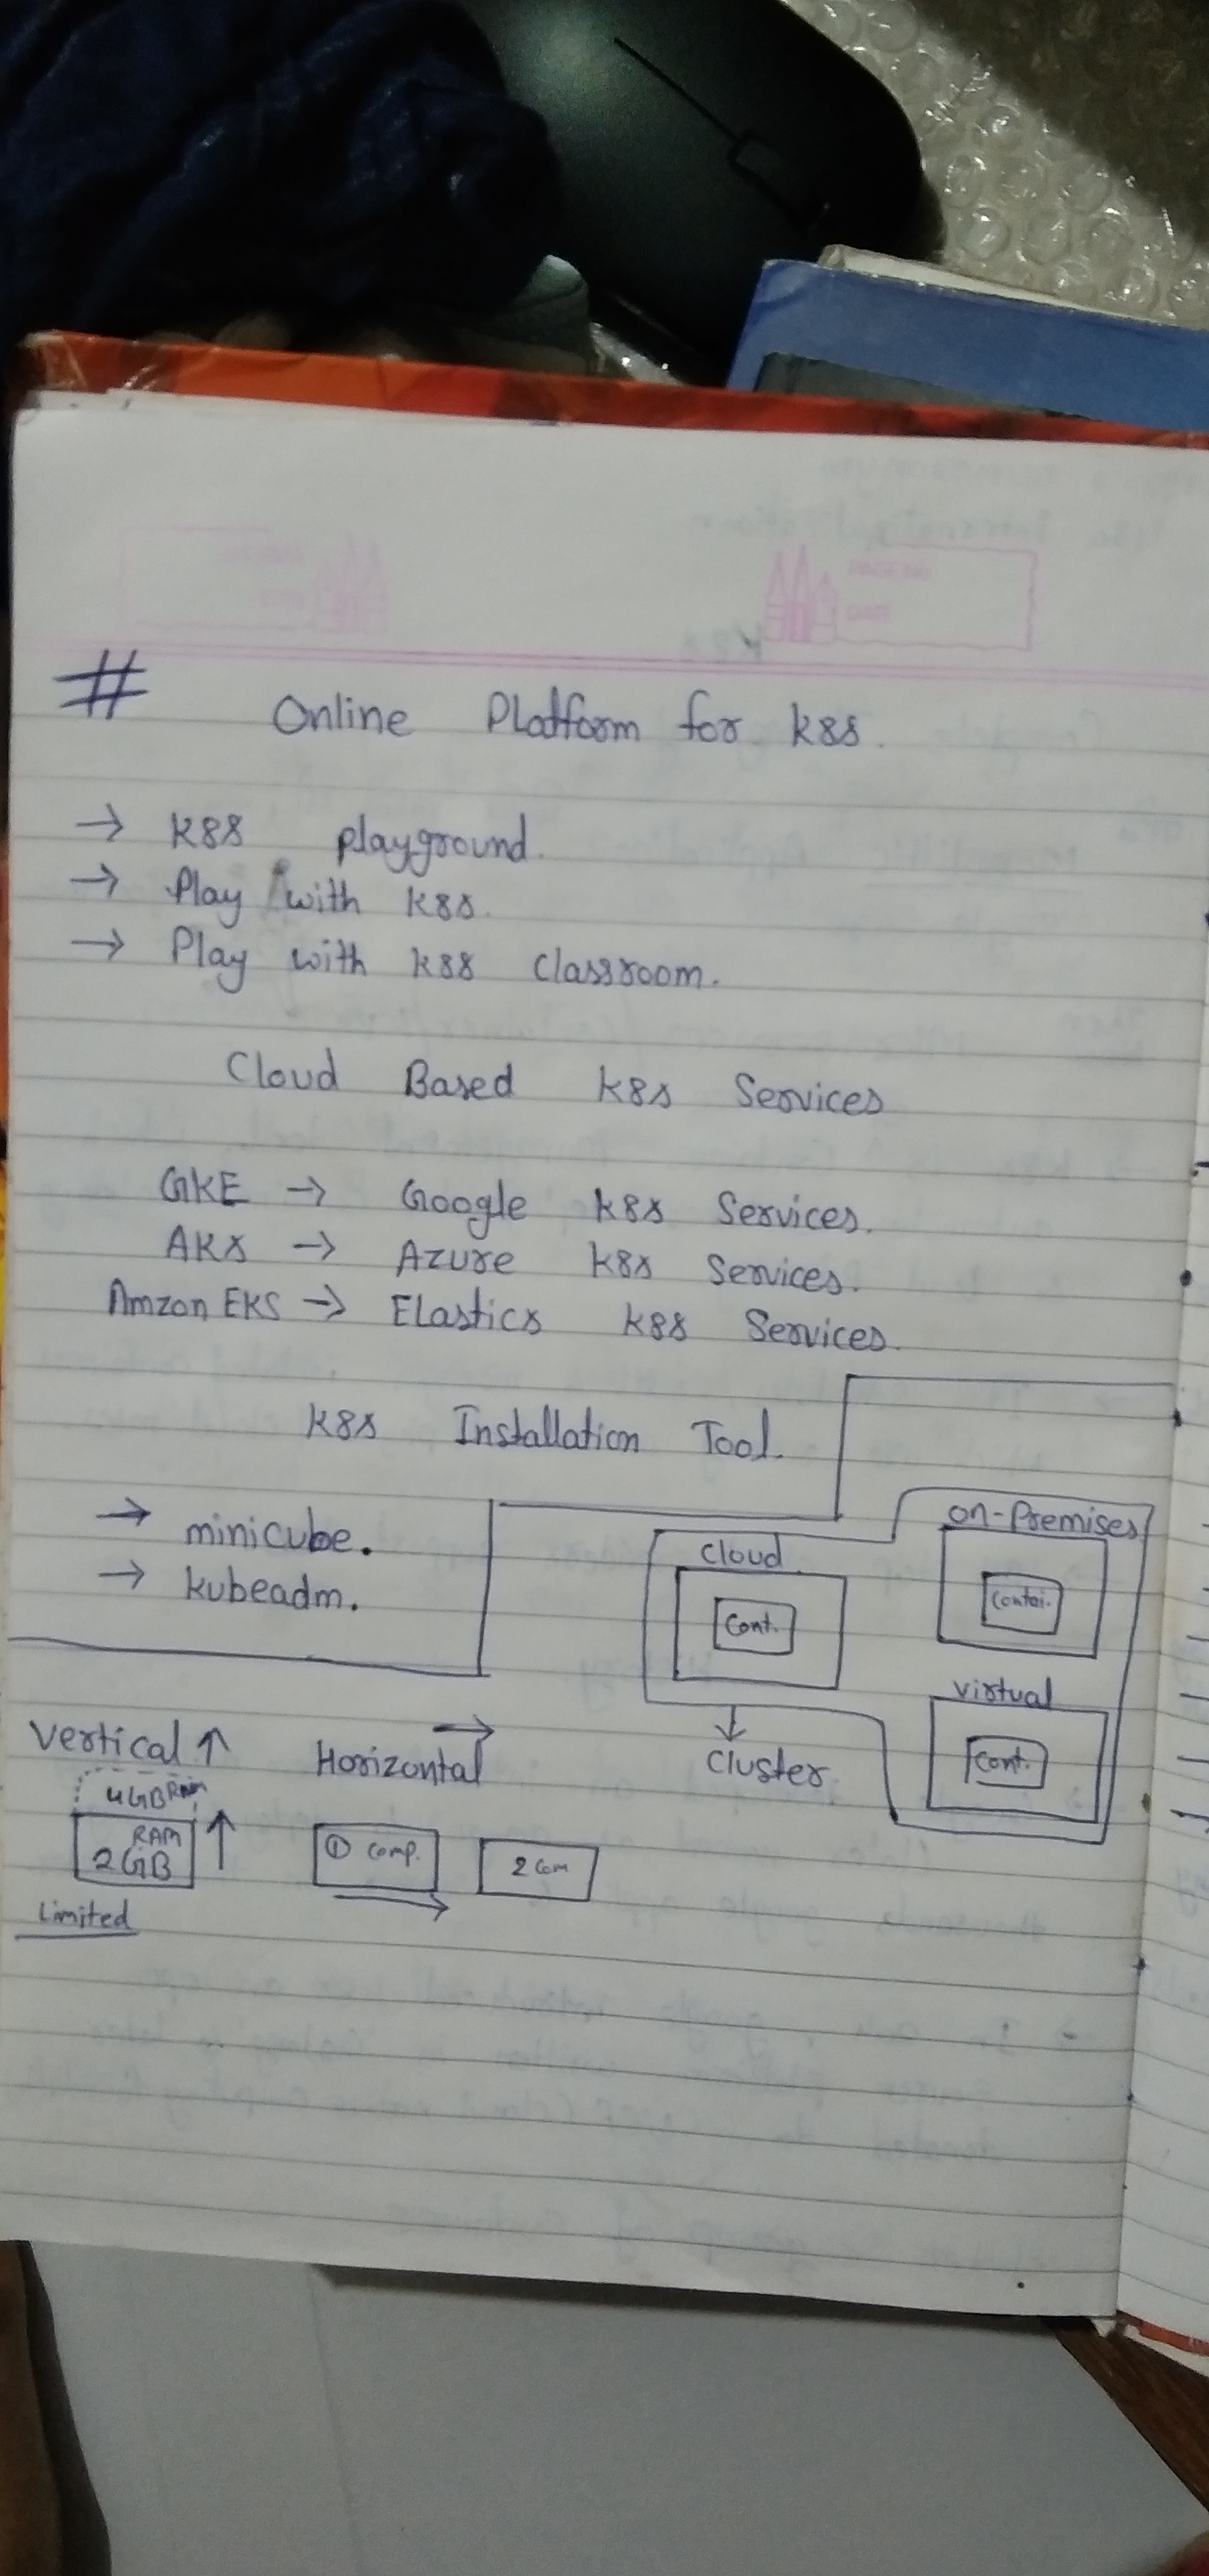 # Online Platform for k8s.
→ k8s playground.
→ Play with k8s.
→ Play with k8s classroom.
Cloud Based k8s Services
GKE → Google k8s Services.
AKs → Azure k8s Services.
Amzon EKS → Elastics k8s Services.
k8s Installation Tool.
→ minicube.
→ kubeadm.
on-Premises
Contai.
Cloud
Cont.
virtual
Cont.
↓
Cluster
Vertical ↑
4GB RAM
RAM
2GB ↑
Limited
→
Horizontal
① Comp.
2 Com
→